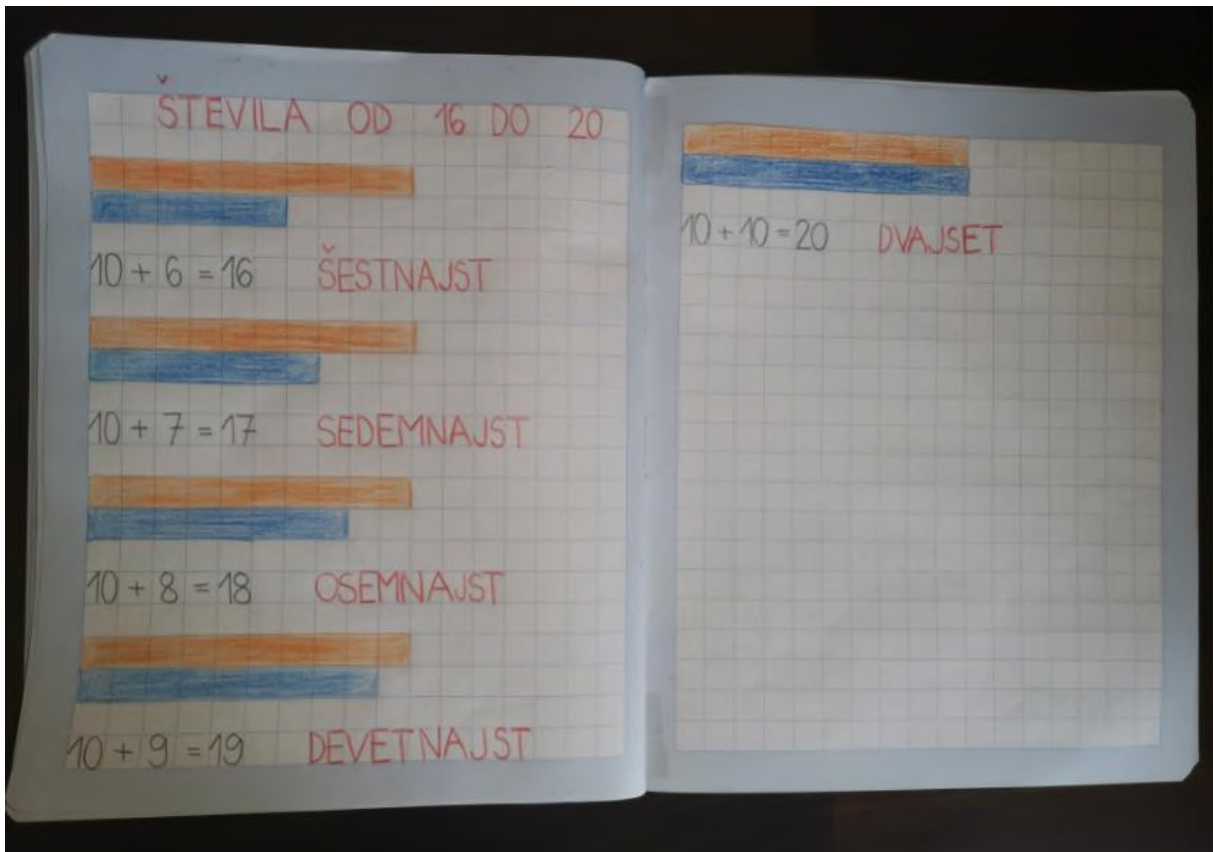 ŠTEVILA OD 16 DO 20
10 + 6 = 16 ŠESTNAJST
10 + 7 = 17 SEDEMNAJST
10 + 8 = 18 OSEMNAJST
10 + 9 = 19 DEVETNAJST
10 + 10 = 20 DVAJSET